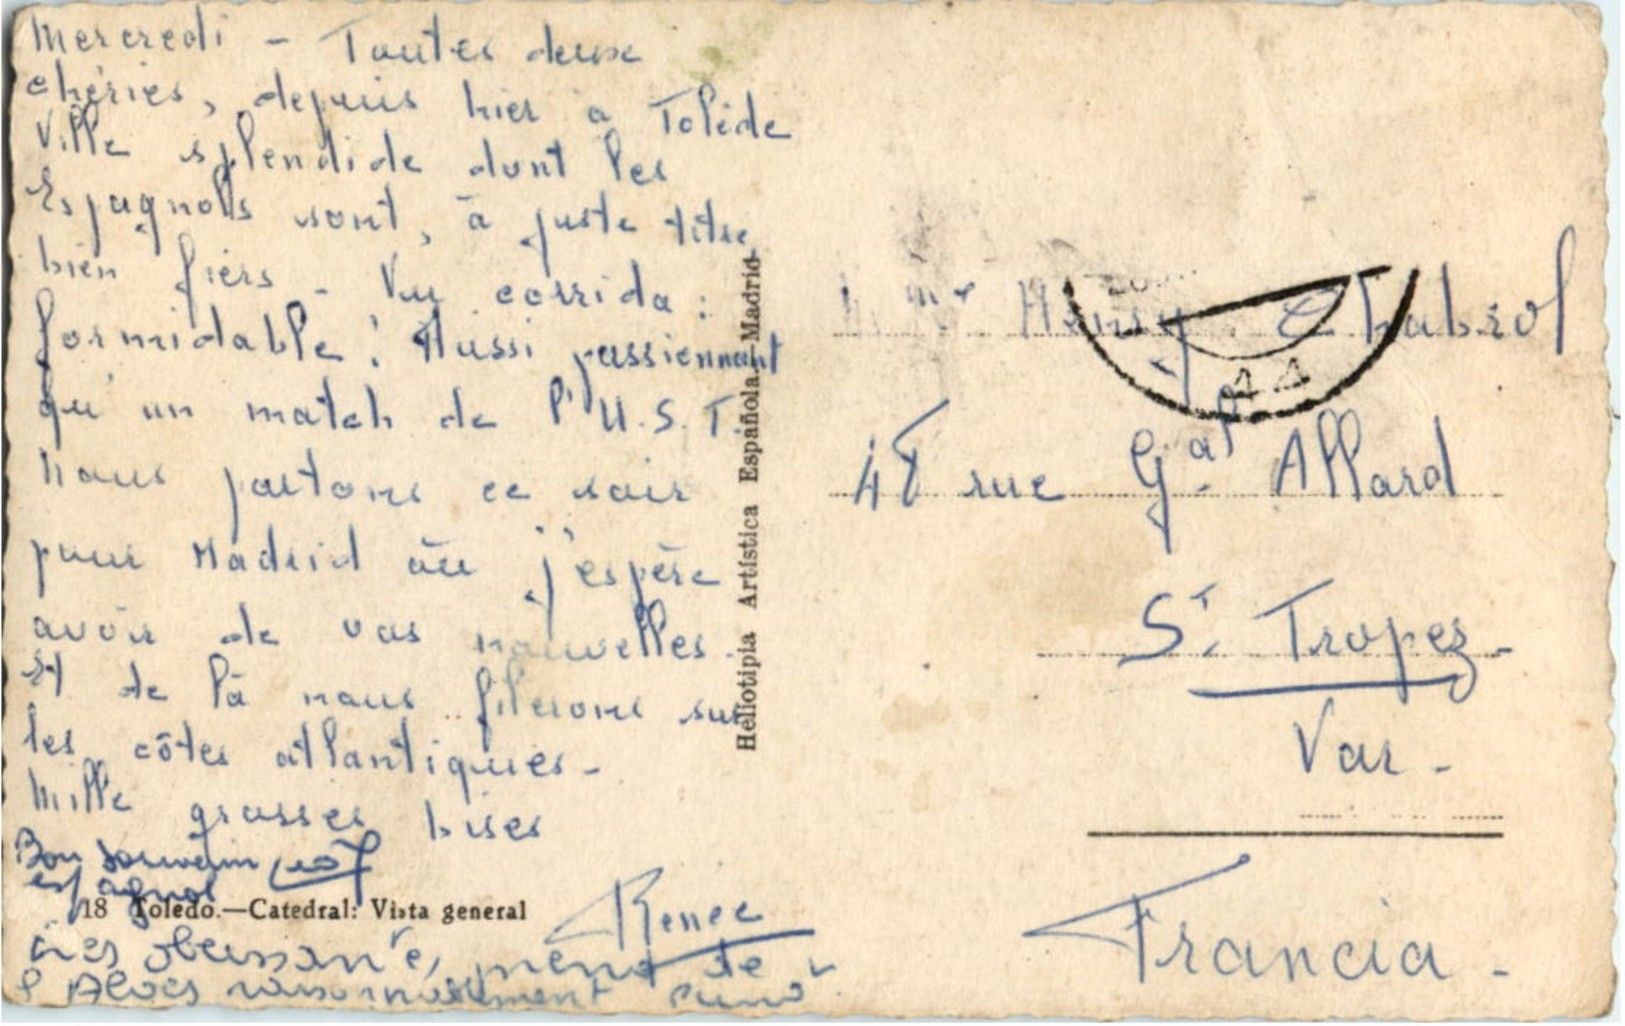 Mercredi - Toutes deux
chéries, depuis hier à Tolède
Ville splendide dont les
Espagnols sont, à juste titre
bien fiers - Vu corrida :
formidable ! Aussi passionnant
qu'un match de l'U.S.T.
Nous partons ce soir
pour Madrid où j'espère
avoir de vos nouvelles.
Et de là nous filerons sur
les côtes atlantiques -
Mille grosses bises
Bon souvenir
espagnol
Renée
18 Toledo.—Catedral: Vista general
Heliotipia Artística Española.—Madrid
Mr Henry Chabrol
48 rue Gal Allard
St. Tropez -
Var -
Francia -